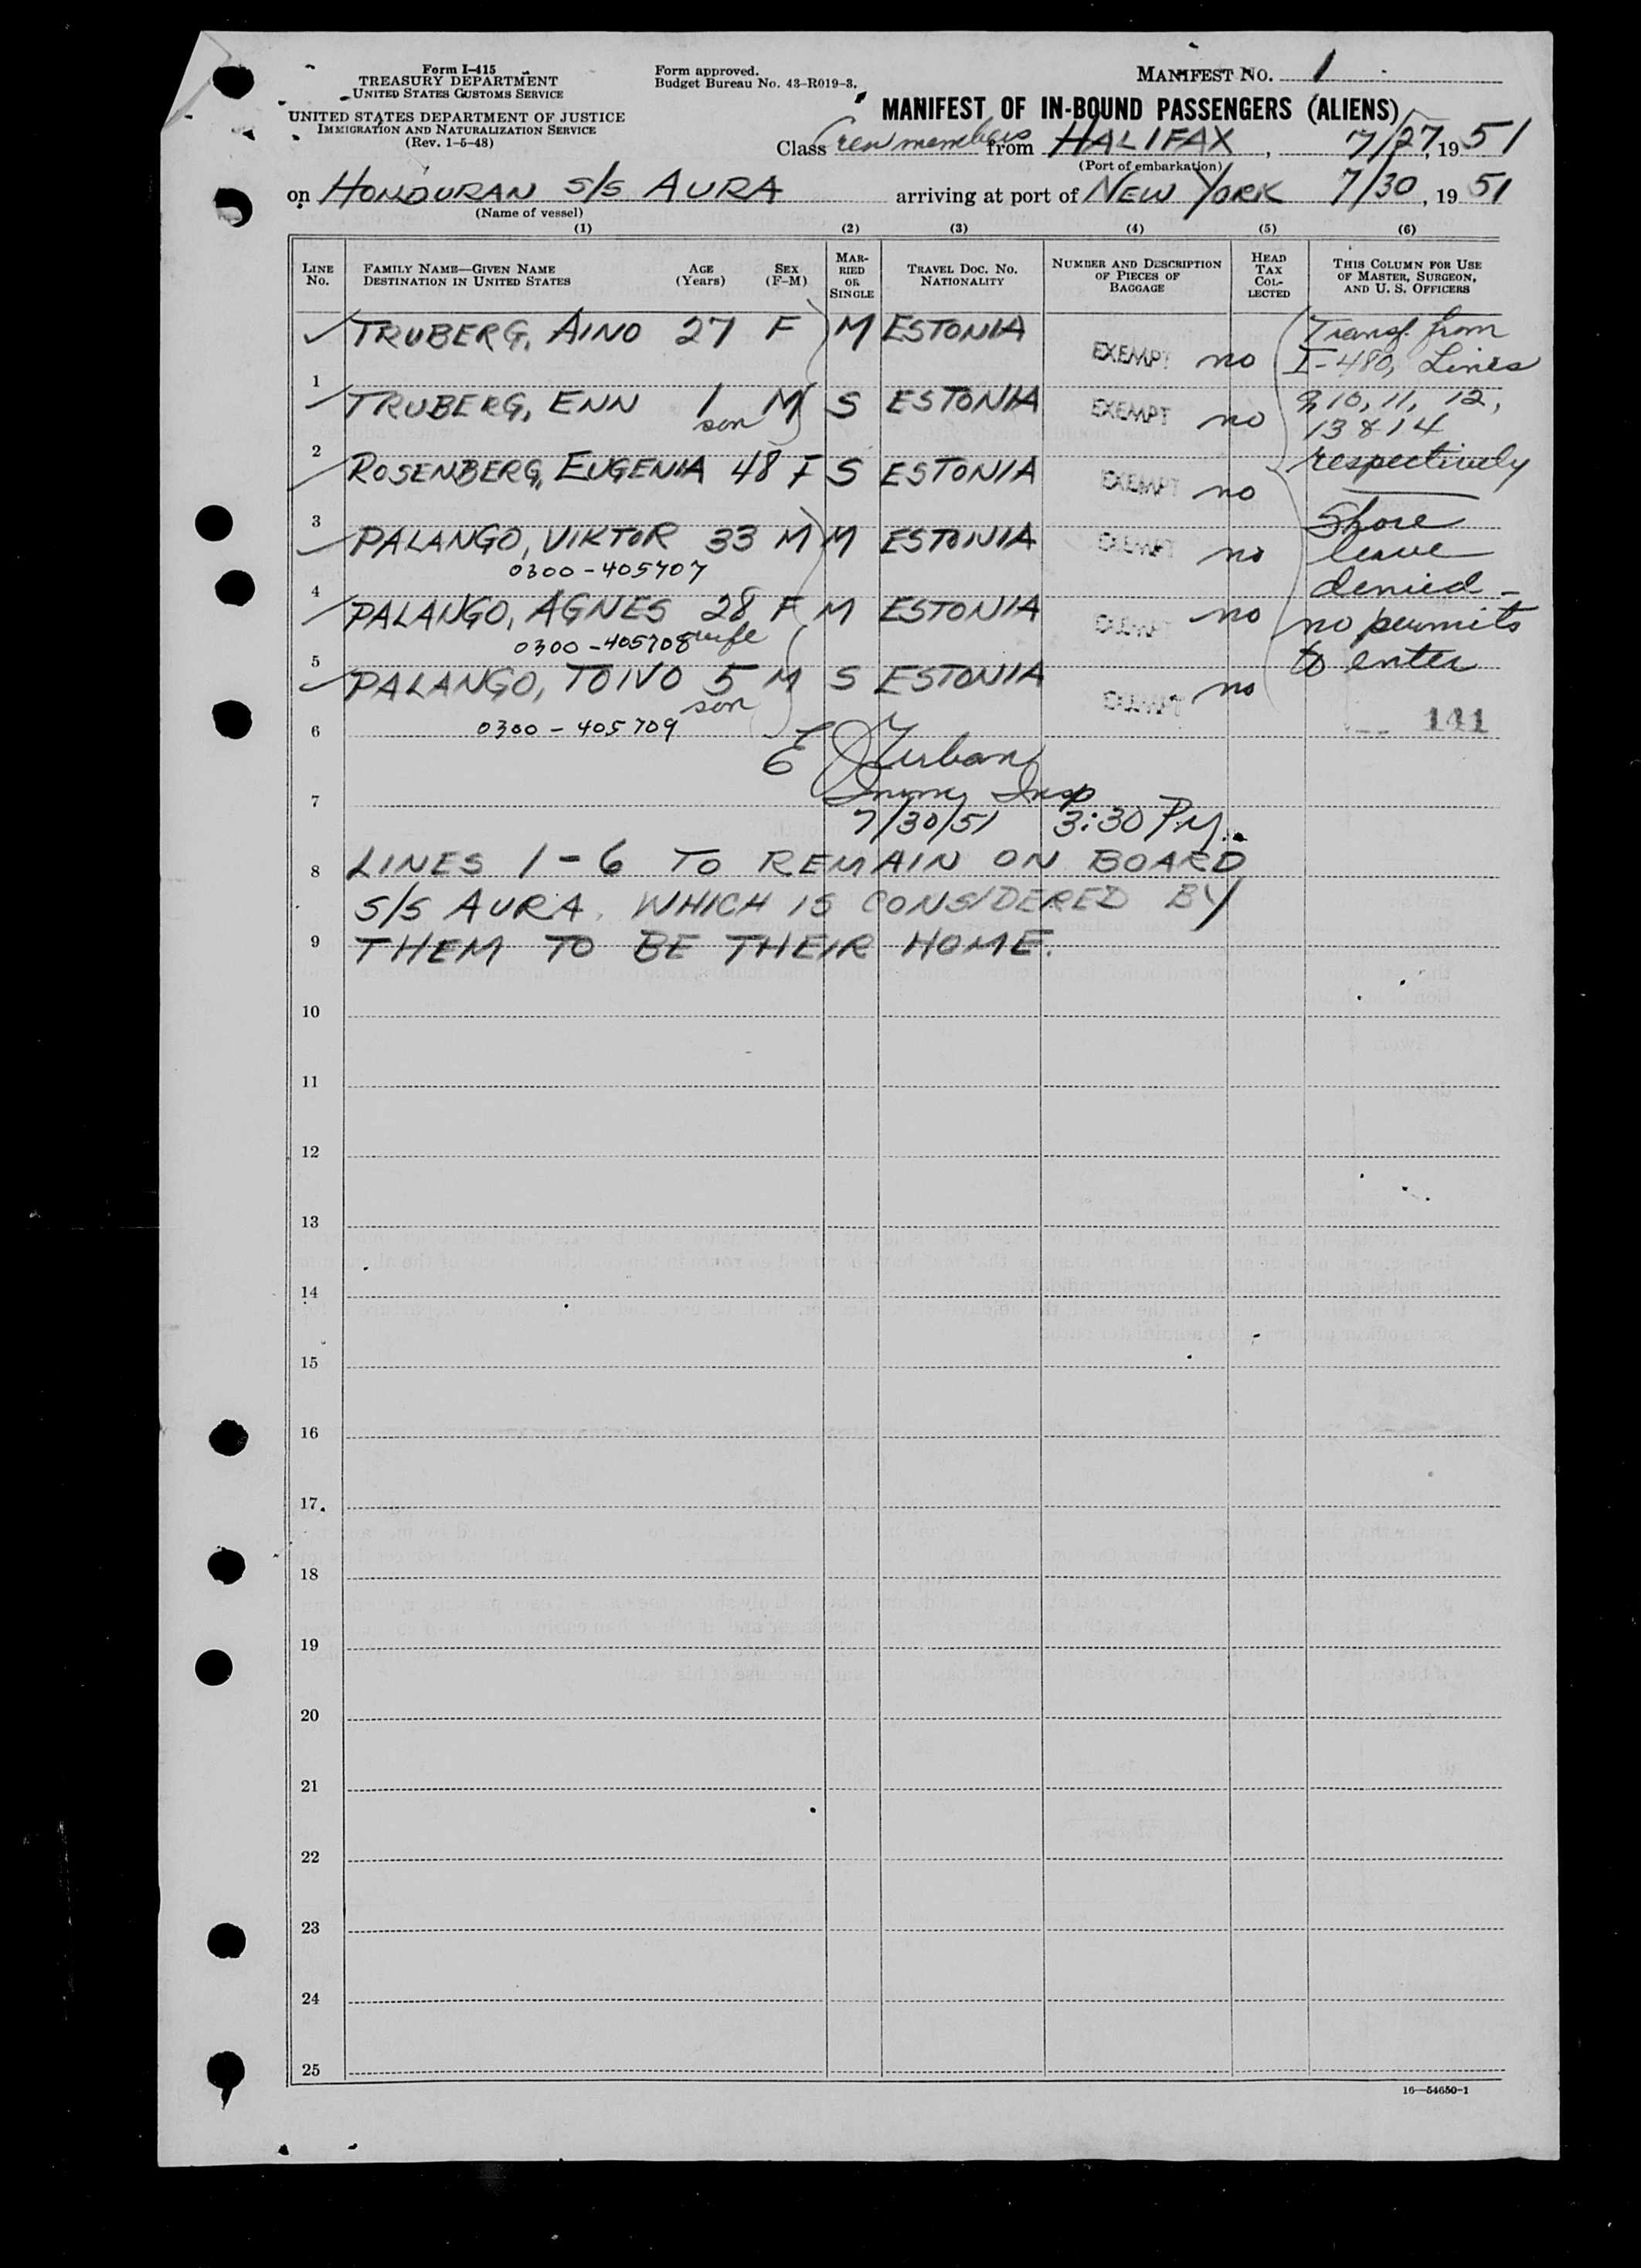 Form I-415
TREASURY DEPARTMENT
UNITED STATES CUSTOMS SERVICE
UNITED STATES DEPARTMENT OF JUSTICE
IMMIGRATION AND NATURALIZATION SERVICE
(Rev. 1-5-48)
Form approved.
Budget Bureau No. 43-R019-3.
MANIFEST NO. 1
MANIFEST OF IN-BOUND PASSENGERS (ALIENS)
Class Crew members from HALIFAX, 7/27, 1951
(Port of embarkation)
on HONDURAN S/S AURA arriving at port of NEW YORK 7/30, 1951
(Name of vessel)
(1) (2) (3) (4) (5) (6)
LINE NO.
FAMILY NAME—GIVEN NAME
DESTINATION IN UNITED STATES
AGE (Years)
SEX (F-M)
MARRIED OR SINGLE
TRAVEL DOC. NO. NATIONALITY
NUMBER AND DESCRIPTION OF PIECES OF BAGGAGE
HEAD TAX COLLECTED
THIS COLUMN FOR USE OF MASTER, SURGEON, AND U. S. OFFICERS
TRUBERG, AINO 27 F M ESTONIA EXEMPT no
1
TRUBERG, ENN 1 M S ESTONIA EXEMPT no
son
2
ROSENBERG, EUGENIA 48 F S ESTONIA EXEMPT no
3
PALANGO, VIKTOR 33 M M ESTONIA EXEMPT no
0300-405707
4
PALANGO, AGNES 28 F M ESTONIA EXEMPT no
0300-405708 wife
5
PALANGO, TOIVO 5 M S ESTONIA EXEMPT no
son
0300-405709
6
Transf. from
I-480, Lines
9, 10, 11, 12,
13 & 14
respectively
Shore
leave
denied -
no permits
to enter
141
E J Turban
Immg Insp
7
7/30/51 3:30 P.M.
8 LINES 1-6 TO REMAIN ON BOARD
S/S AURA, WHICH IS CONSIDERED BY
9 THEM TO BE THEIR HOME.
10
11
12
13
14
15
16
17
18
19
20
21
22
23
24
25
16—54650-1